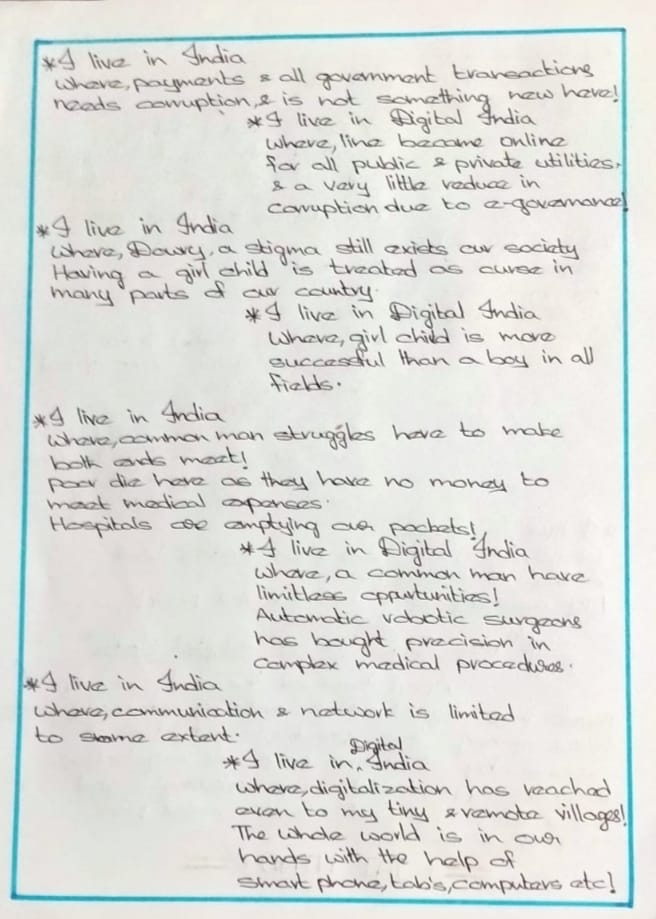 *I live in India
where, payments & all government transactions
needs corruption, & is not something new here!
*I live in Digital India
where, line became online
for all public & private utilities,
& a very little reduce in
corruption due to e-governance!
*I live in India
where, Dowry, a stigma still exists our society
Having a girl child is treated as curse in
many parts of our country.
*I live in Digital India
where, girl child is more
successful than a boy in all
fields.
*I live in India
where, common man struggles here to make
both ends meet!
poor die here as they have no money to
meet medical expenses.
Hospitals are emptying our pockets!
*I live in Digital India
where, a common man have
limitless oppurtunities!
Automatic robotic surgeons
has bought precision in
complex medical procedures.
*I live in India
where, communication & network is limited
to some extent.
*I live in Digital India
where, digitalization has reached
even to my tiny & remote villages!
The whole world is in our
hands with the help of
smart phone, tab's, computers etc!